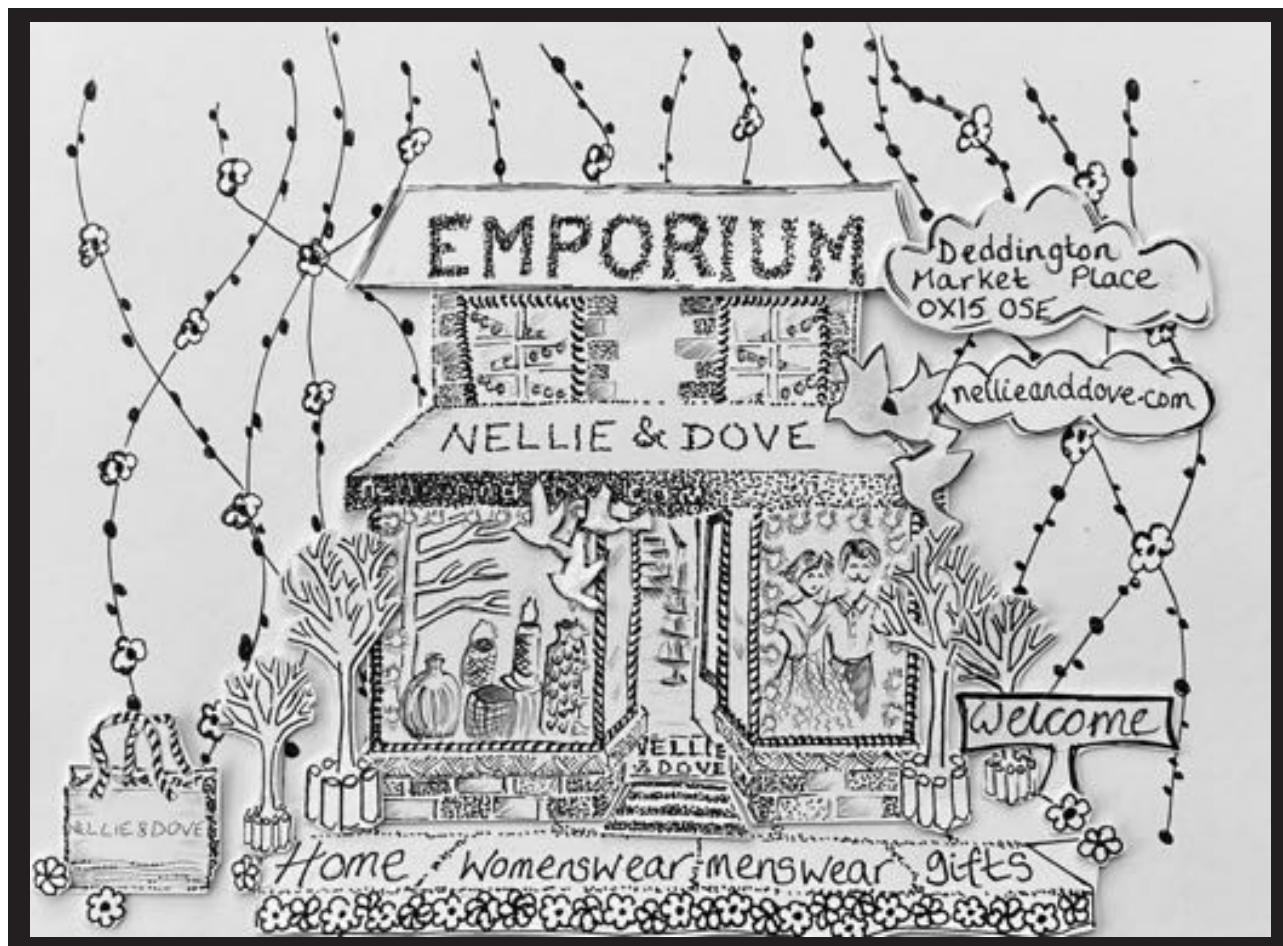 EMPORIUM
Deddington
Market Place
OX15 0SE
nellieanddove.com
NELLIE & DOVE
Welcome
NELLIE
& DOVE
NELLIE & DOVE
Home womenswear menswear gifts